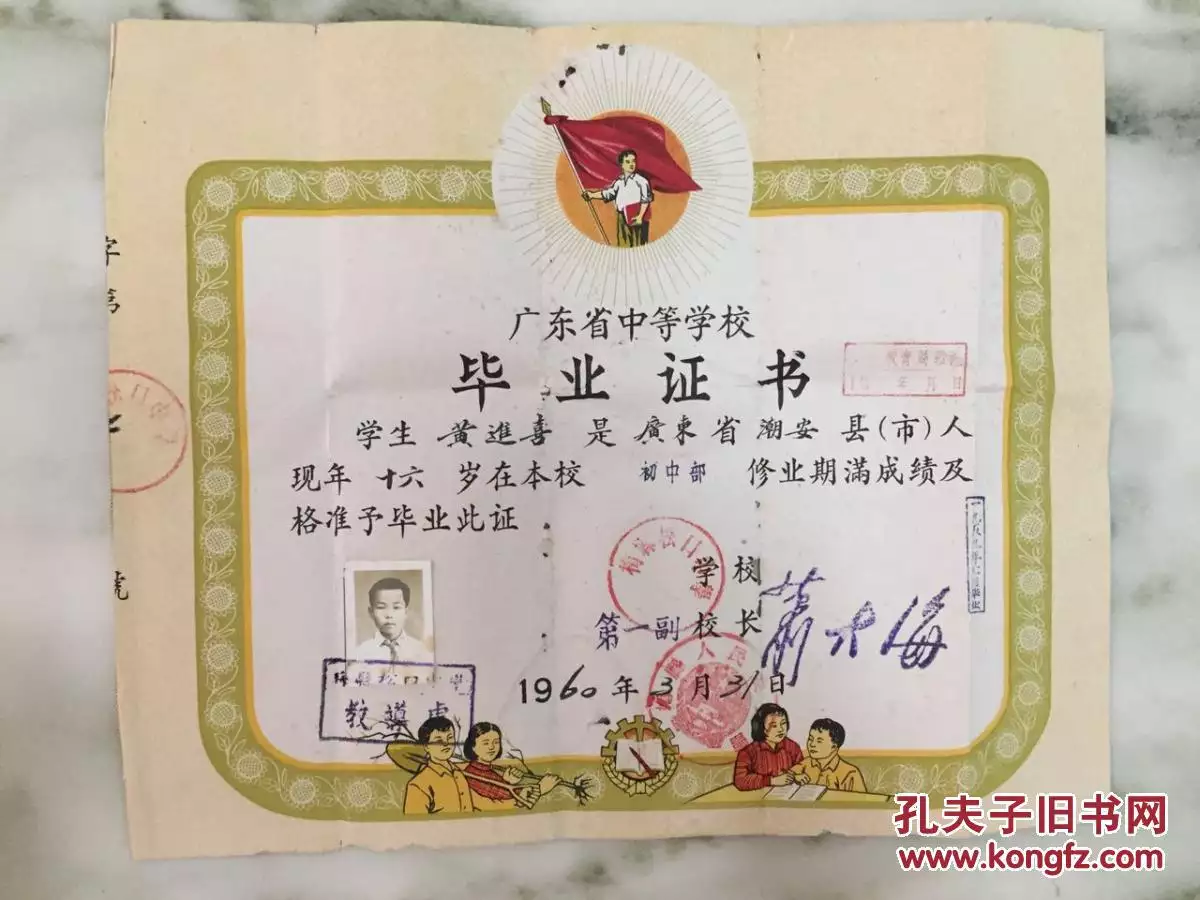 广东省中等学校
毕业证书
学生 黄進喜 是 廣東省 潮安 县(市)人
现年 十六 岁在本校 初中部 修业期满成绩及
格准予毕业此证
学校
第一副校长 萧大海
1960年3月31日
字第
號
松口
教導處
孔夫子旧书网
www.kongfz.com